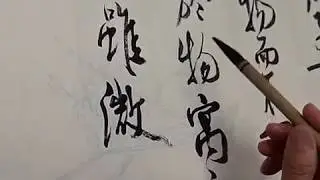 物而不
於物寓
雖微